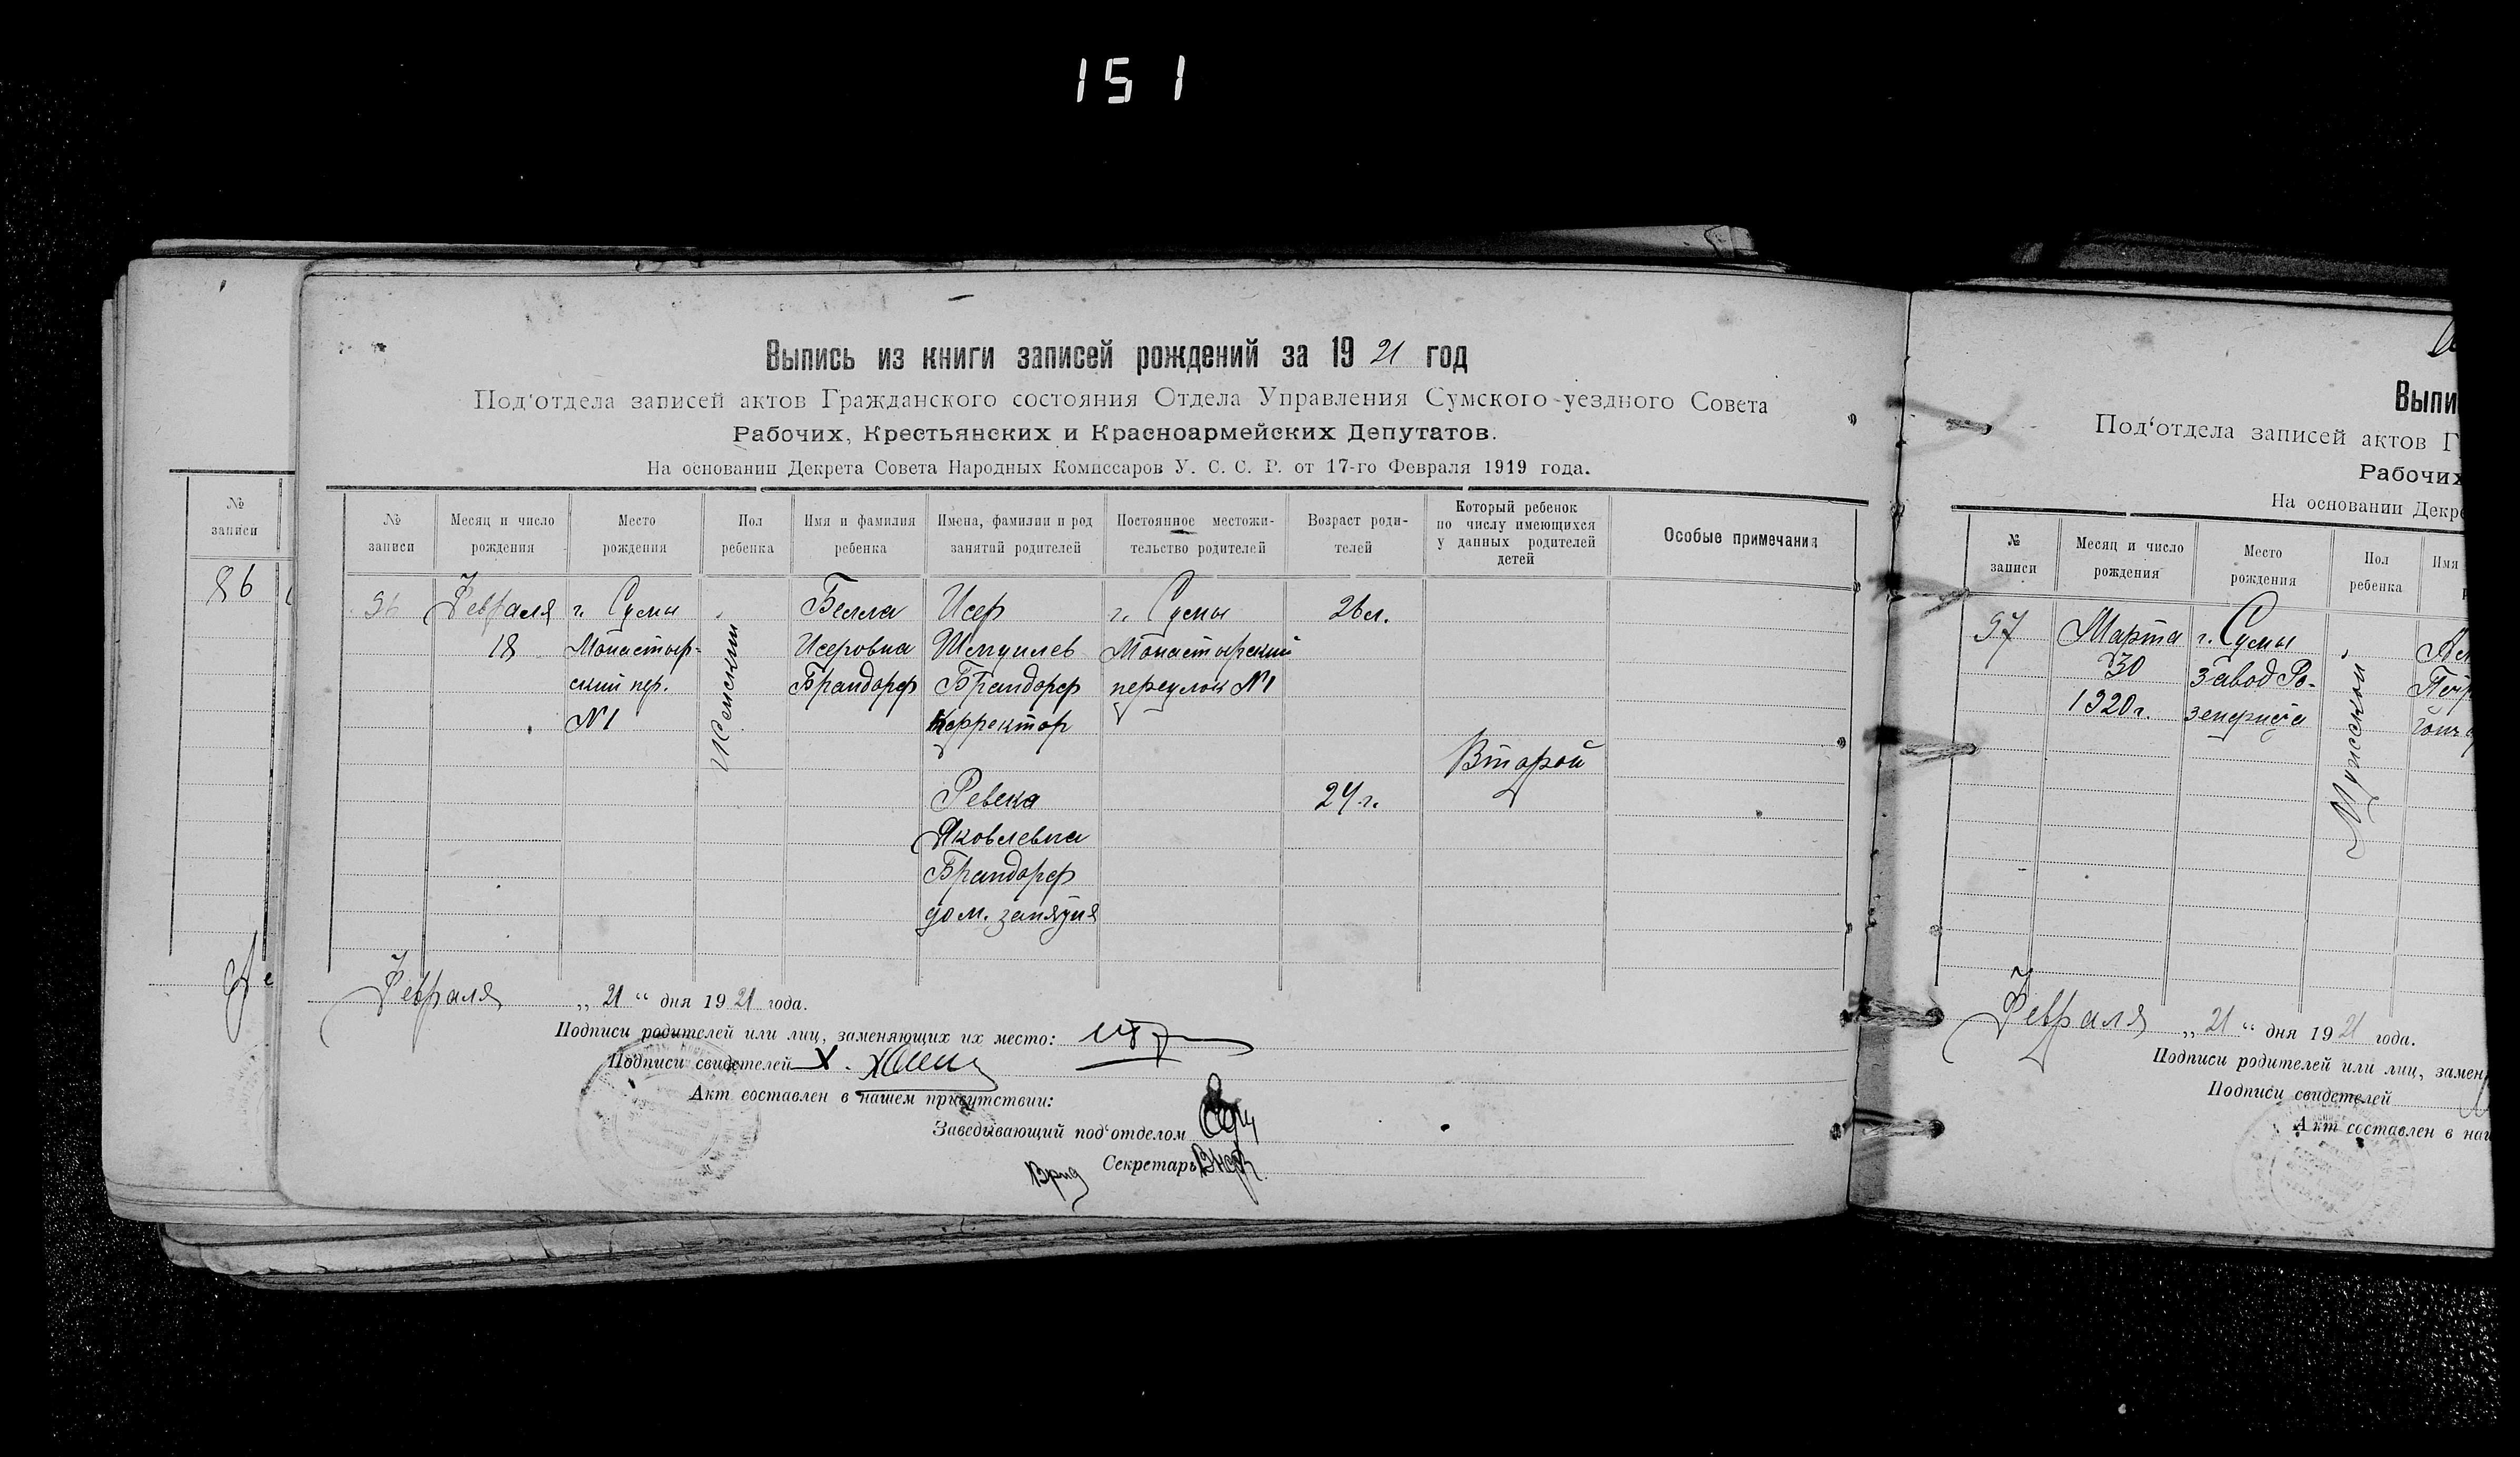 151
№
записи
86
Выпись из книги записей рождений за 1921 год
Под'отдела записей актов Гражданского состояния Отдела Управления Сумского уездного Совета
Рабочих, Крестьянских и Красноармейских Депутатов.
На основании Декрета Совета Народных Комиссаров У. С. С. Р. от 17-го Февраля 1919 года.
№
записи
Месяц и число
рождения
Место
рождения
Пол
ребенка
Имя и фамилия
ребенка
Имена, фамилии и род
занятий родителей
Постоянное местожи-
тельство родителей
Возраст роди-
телей
Который ребенок
по числу имеющихся
у данных родителей
детей
Особые примечания
96
Февраля
18
г. Сумы
Монастыр-
ский пер.
№1
Женский
Белла
Исеровна
Брандорф
Исер
Шмуилев
Брандорф
Корректор
Ревека
Яковлевна
Брандорф
дом. занятия
г. Сумы
Монастырский
переулок №1
26 л.
24 г.
Второй
Февраля „21“ дня 1921 года.
Подписи родителей или лиц, заменяющих их место:
Подписи свидетелей
Акт составлен в нашем присутствии:
Заведывающий под'отделом
Врид Секретарь
Выпи
Под'отдела записей актов Г
Рабочих
На основании Декре
№
записи
Месяц и число
рождения
Место
рождения
Пол
ребенка
Имя
97
Марта
30
1920 г.
г. Сумы
завод Ро-
Мужской
Февраля „21“ дня 1921 года.
Подписи родителей или лиц, замен
Подписи свидетелей
Акт составлен в наш